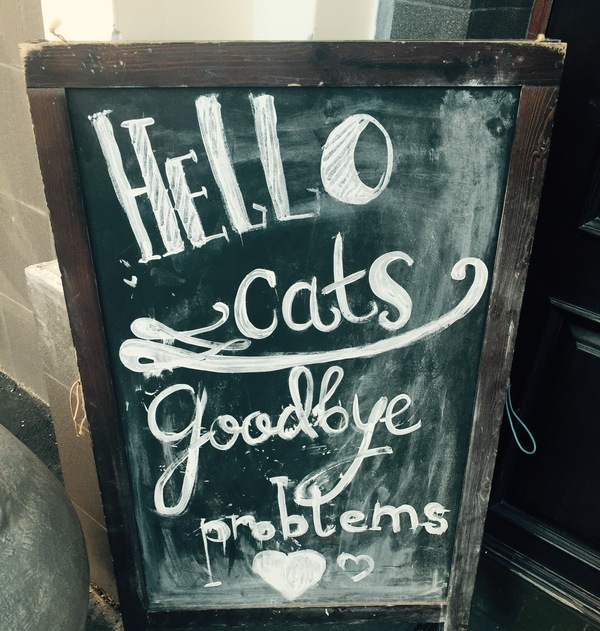 HELLO
cats
goodbye
problems